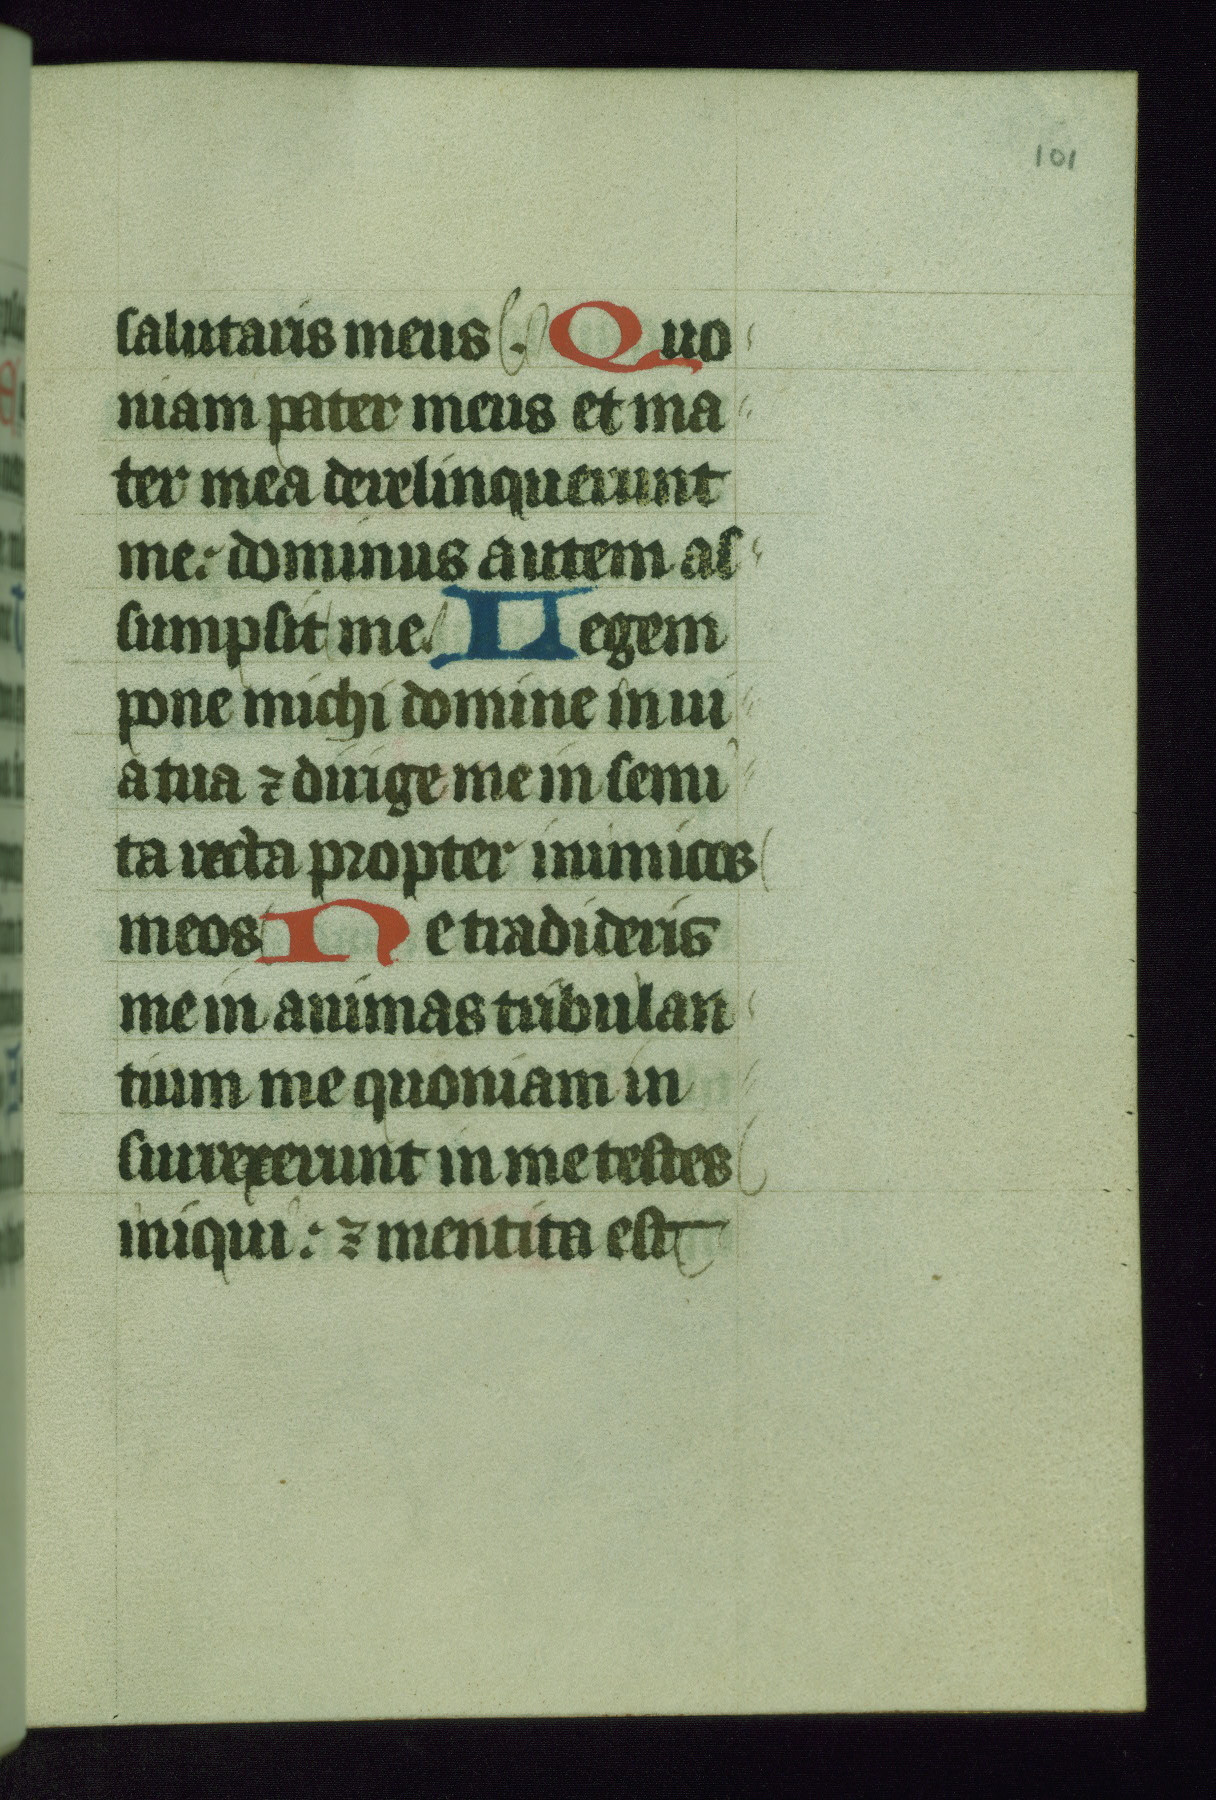 101
salutaris meus. Quo
niam pater meus et ma
ter mea derelinquerunt
me: dominus autem as
sumpsit me. Legem
pone michi domine in ui
a tua ⁊ dirige me in semi
ta recta propter inimicos
meos Ne tradideris
me in animas tribulan
tium me quoniam in
surrexerunt in me testes
iniqui: ⁊ mentita est